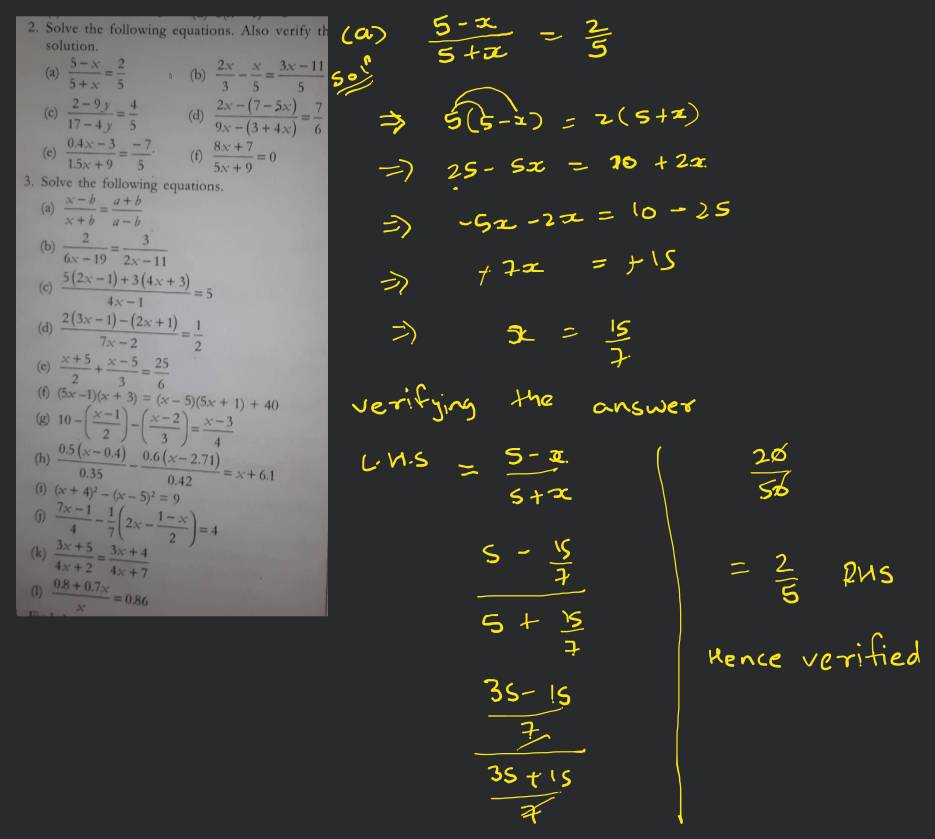 2. Solve the following equations. Also verify th
solution.
(a) (5-x)/(5+x) = 2/5 (b) 2x/3 - x/5 = (3x-11)/5
(c) (2-9y)/(17-4y) = 4/5 (d) (2x-(7-5x))/(9x-(3+4x)) = 7/6
(e) (0.4x-3)/(1.5x+9) = -7/5 (f) (8x+7)/(5x+9) = 0
3. Solve the following equations.
(a) (x-b)/(x+b) = (a+b)/(a-b)
(b) 2/(6x-19) = 3/(2x-11)
(c) (5(2x-1)+3(4x+3))/(4x-1) = 5
(d) (2(3x-1)-(2x+1))/(7x-2) = 1/2
(e) (x+5)/2 + (x-5)/3 = 25/6
(f) (5x-1)(x+3) = (x-5)(5x+1) + 40
(g) 10 - ((x-1)/2) - ((x-2)/3) = (x-3)/4
(h) 0.5(x-0.4)/0.35 - 0.6(x-2.71)/0.42 = x+6.1
(i) (x+4)² - (x-5)² = 9
(j) (7x-1)/4 - 1/7(2x - (1-x)/2) = 4
(k) (3x+5)/(4x+2) = (3x+4)/(4x+7)
(l) (0.8+0.7x)/x = 0.86
(a) (5-x)/(5+x) = 2/5
Solⁿ
⇒ 5(5-x) = 2(5+x)
⇒ 25 - 5x = 10 + 2x
⇒ -5x - 2x = 10 - 25
⇒ +7x = +15
⇒ x = 15/7
verifying the answer
L.H.S = (5-x)/(5+x)
(5 - 15/7)/(5 + 15/7)
((35-15)/7)/((35+15)/7)
20/50
= 2/5 RHS
Hence verified